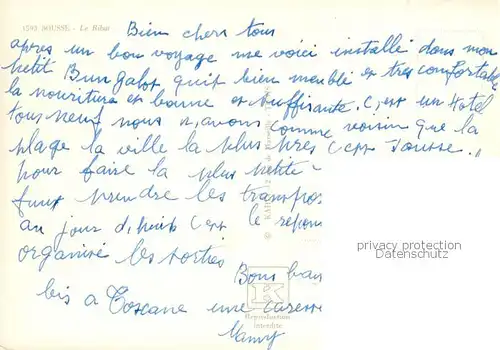 1593 SOUSSE - Le Ribat
Bien chers tous
apres un bon voyage me voici installé dans mon
petit Bungalot quit bien meublé et tres comfortable
la nouriture et bonne et suffisante. C, est un Hotel
tous neuf nous n, avons comme voisin que la
plage la ville la plus pres c'est Sousse. "
pour faire la plus petite
faut prendre les transpo
au jour d, huis c'est le repo
organisé les sorties
Bons bais
bis a Toscane une caresse
Mamy
© KAHIA
K
Reproduction
interdite
privacy protection
Datenschutz / AkpoolDE